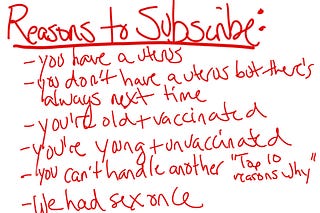 Reasons to Subscribe:
- you have a uterus
- you don't have a uterus but there's
always next time
- you're old + vaccinated
- you're young + unvaccinated
- you can't handle another "Top 10
reasons why"
- We had sex once